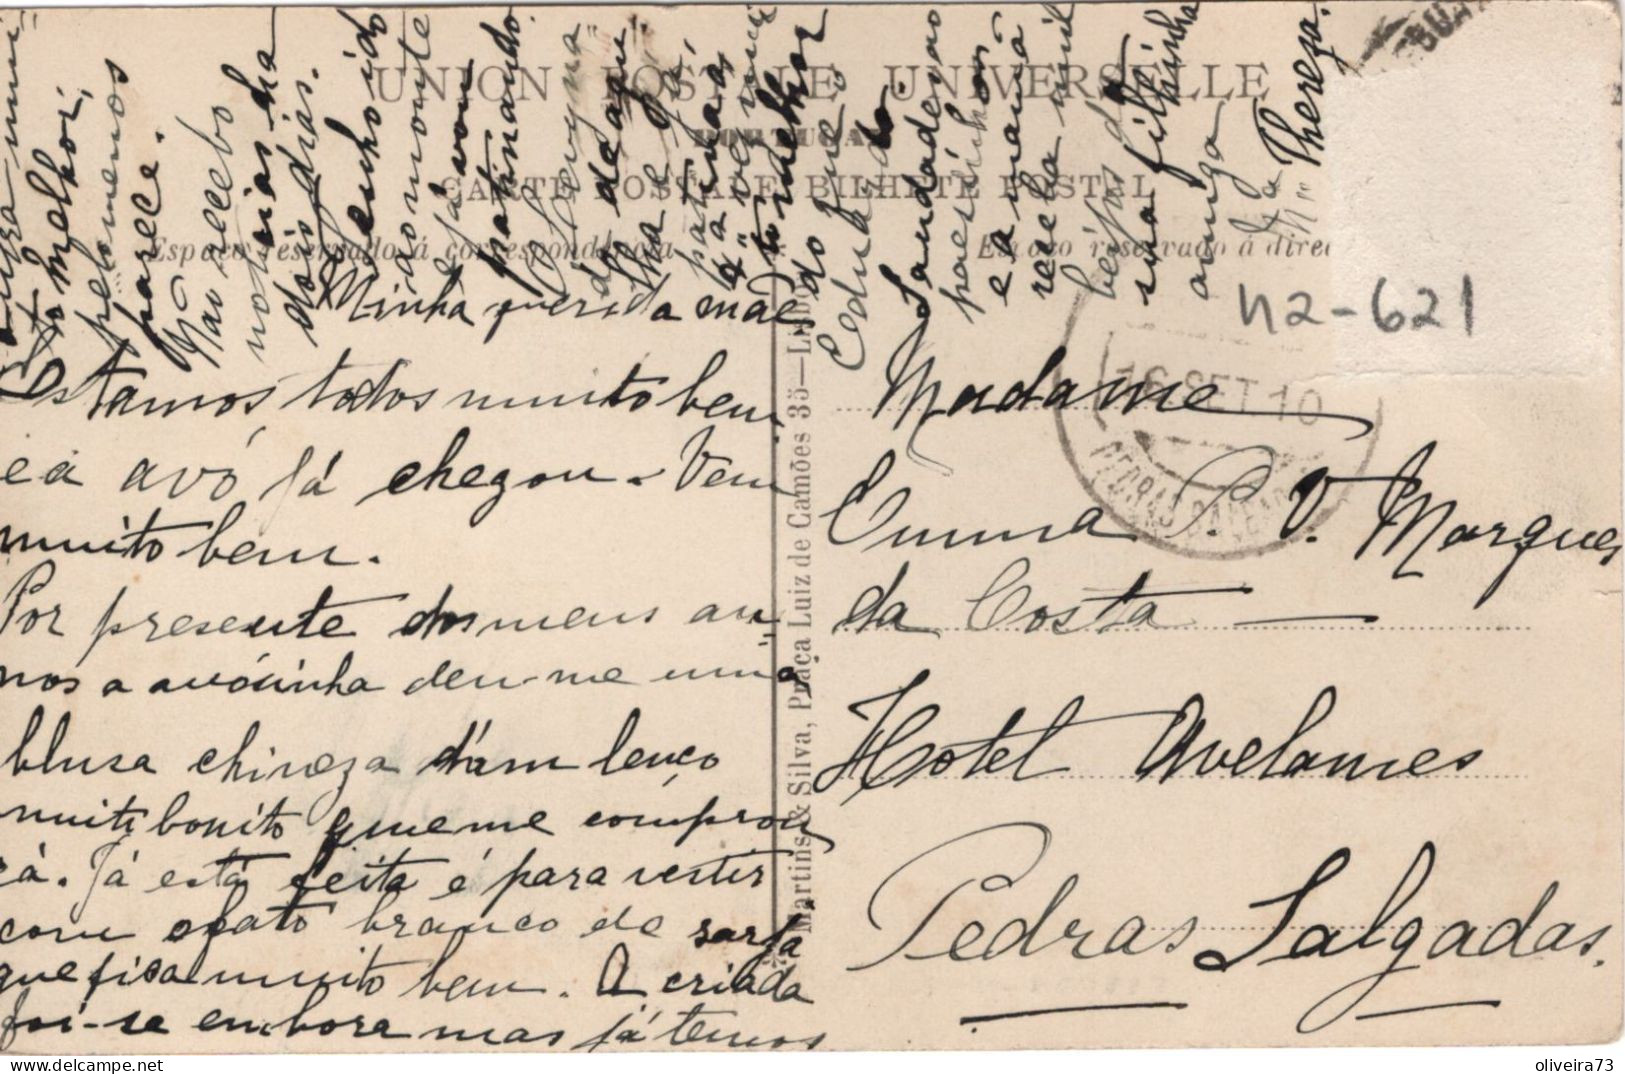 UNION POSTALE UNIVERSELLE
PORTUGAL
CARTE POSTALE BILHETE POSTAL
Espaço reservado á correspondencia
Espaço reservado á direc
Martins & Silva, Praça Luiz de Camões 35—Lisboa
Minha querida mãe
Estamos todos muito bem
e a avó já chegou. Vem
muito bem.
Por presente dos meus an
nos a avósinha deu-me uma
blusa chineza d'um lenço
muito bonito que me comprou
cá. Já está feita é para vestir
com o fato branco de sarja
que fica muito bem. A criada
foi-se embora mas já temos
outra muito
melhor,
pelo menos
parece.
Não recebo
noticias ha
dois dias.
Tenho ido
ao monte
e já vou
patinando
do
lha e já
patinas
Saudades ao
paesinhos
e a mamã
receba mil
beijos da
sua filhinha
amiga
Thereza.
16 SET 10
PEDRAS SALGADAS
n2-621
Madame
Emma P. V. Marques
da Costa
Hotel Avelames
Pedras Salgadas.
oliveira73